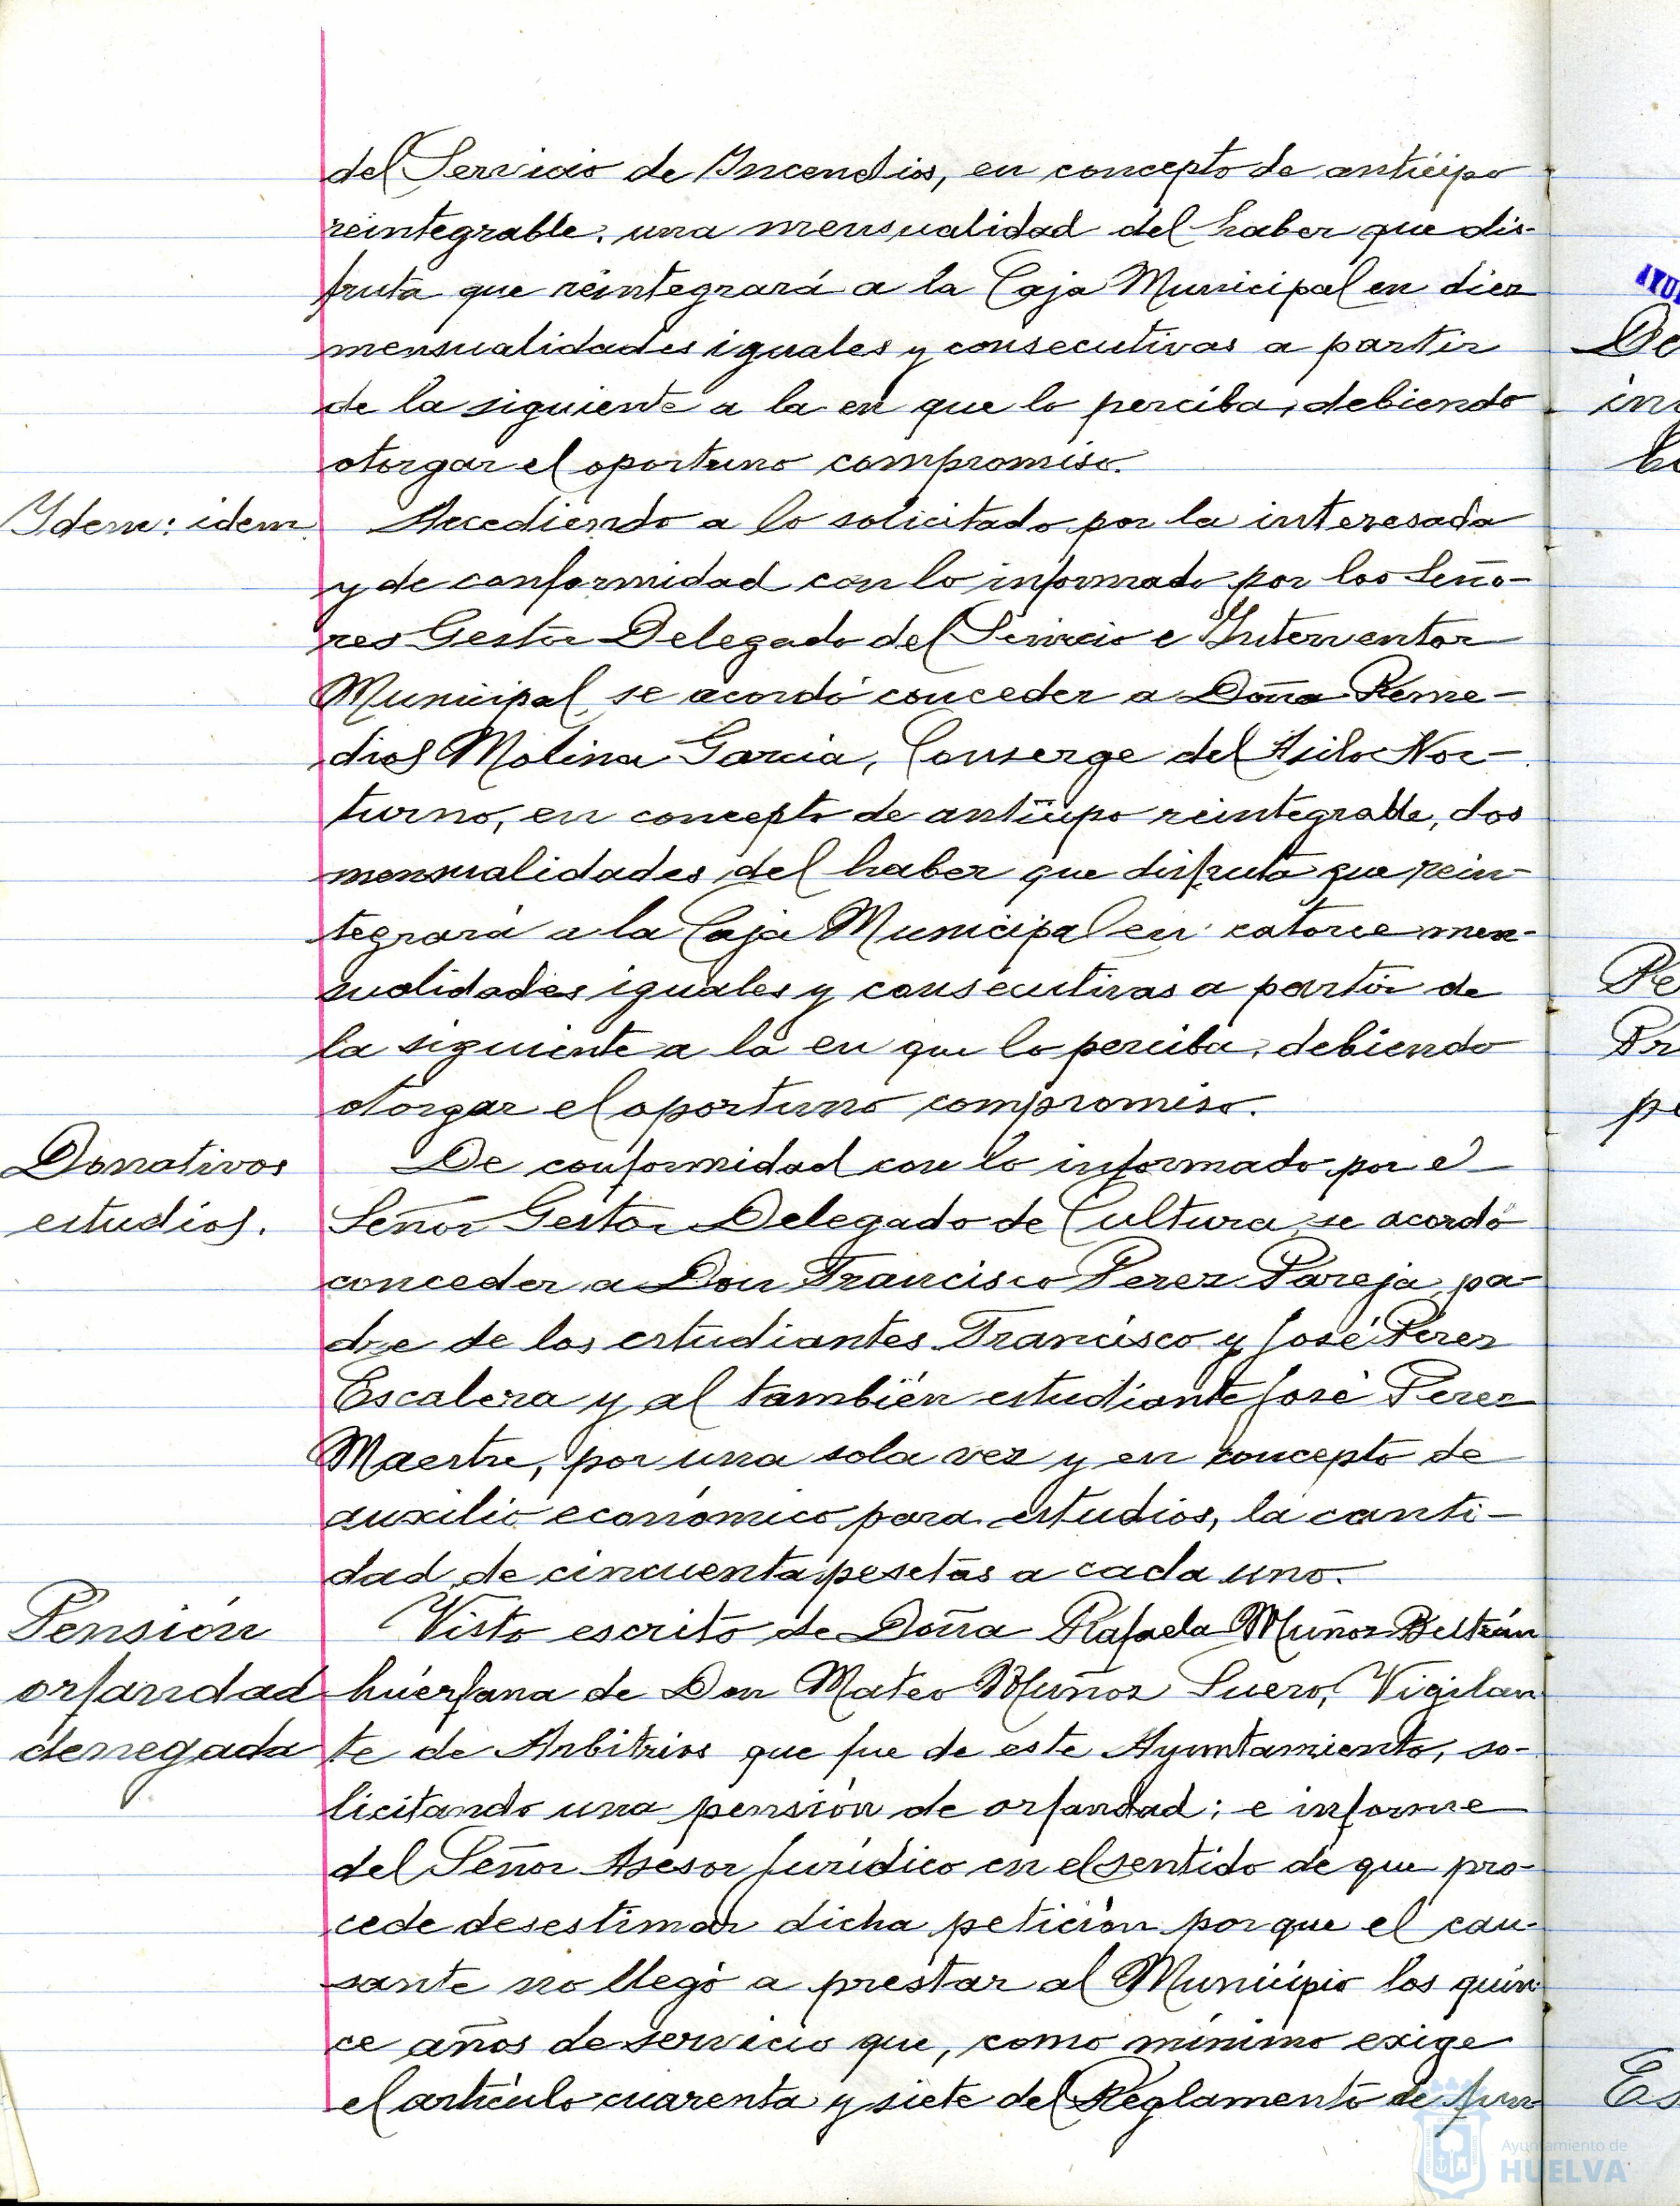 del Servicio de Incendios, en concepto de anticipo
reintegrable, una mensualidad del haber que dis-
fruta que reintegrará a la Caja Municipal en diez
mensualidades iguales y consecutivas a partir
de la siguiente a la en que lo perciba, debiendo
otorgar el oportuno compromiso.
Idem: idem
Accediendo a lo solicitado por la interesada
y de conformidad con lo informado por los Seño-
res Gestor Delegado del Servicio e Interventor
Municipal, se acordó conceder a Doña Reme-
dios Molina Garcia, Conserge del Asilo Noc-
turno, en concepto de anticipo reintegrable, dos
mensualidades del haber que disfruta que rein-
tegrará a la Caja Municipal en catorce men-
sualidades iguales y consecutivas a partir de
la siguiente a la en que lo perciba, debiendo
otorgar el oportuno compromiso.
Donativos
estudios.
De conformidad con lo informado por el
Señor Gestor Delegado de Cultura se acordó
conceder a Don Francisco Perez Pareja, pa-
dre de los estudiantes Francisco y José Perez
Escalera y al también estudiante José Perez
Maestre, por una sola vez y en concepto de
auxilio económico para estudios, la canti-
dad de cincuenta pesetas a cada uno.
Pensión
orfandad
denegada
Visto escrito de Doña Rafaela Muñoz Beltrán
huérfana de Don Mateo Muñoz Suero, Vigilan
te de Arbitrios que fue de este Ayuntamiento, so-
licitando una pensión de orfandad; e informe
del Señor Asesor Jurídico en el sentido de que pro-
cede desestimar dicha petición porque el cau-
sante no llegó a prestar al Municipio los quin-
ce años de servicio que, como mínimo exige
el artículo cuarenta y siete del Reglamento de fun
AYU
De
Pe
Pr
pe
Es
Ayuntamiento de
HUELVA